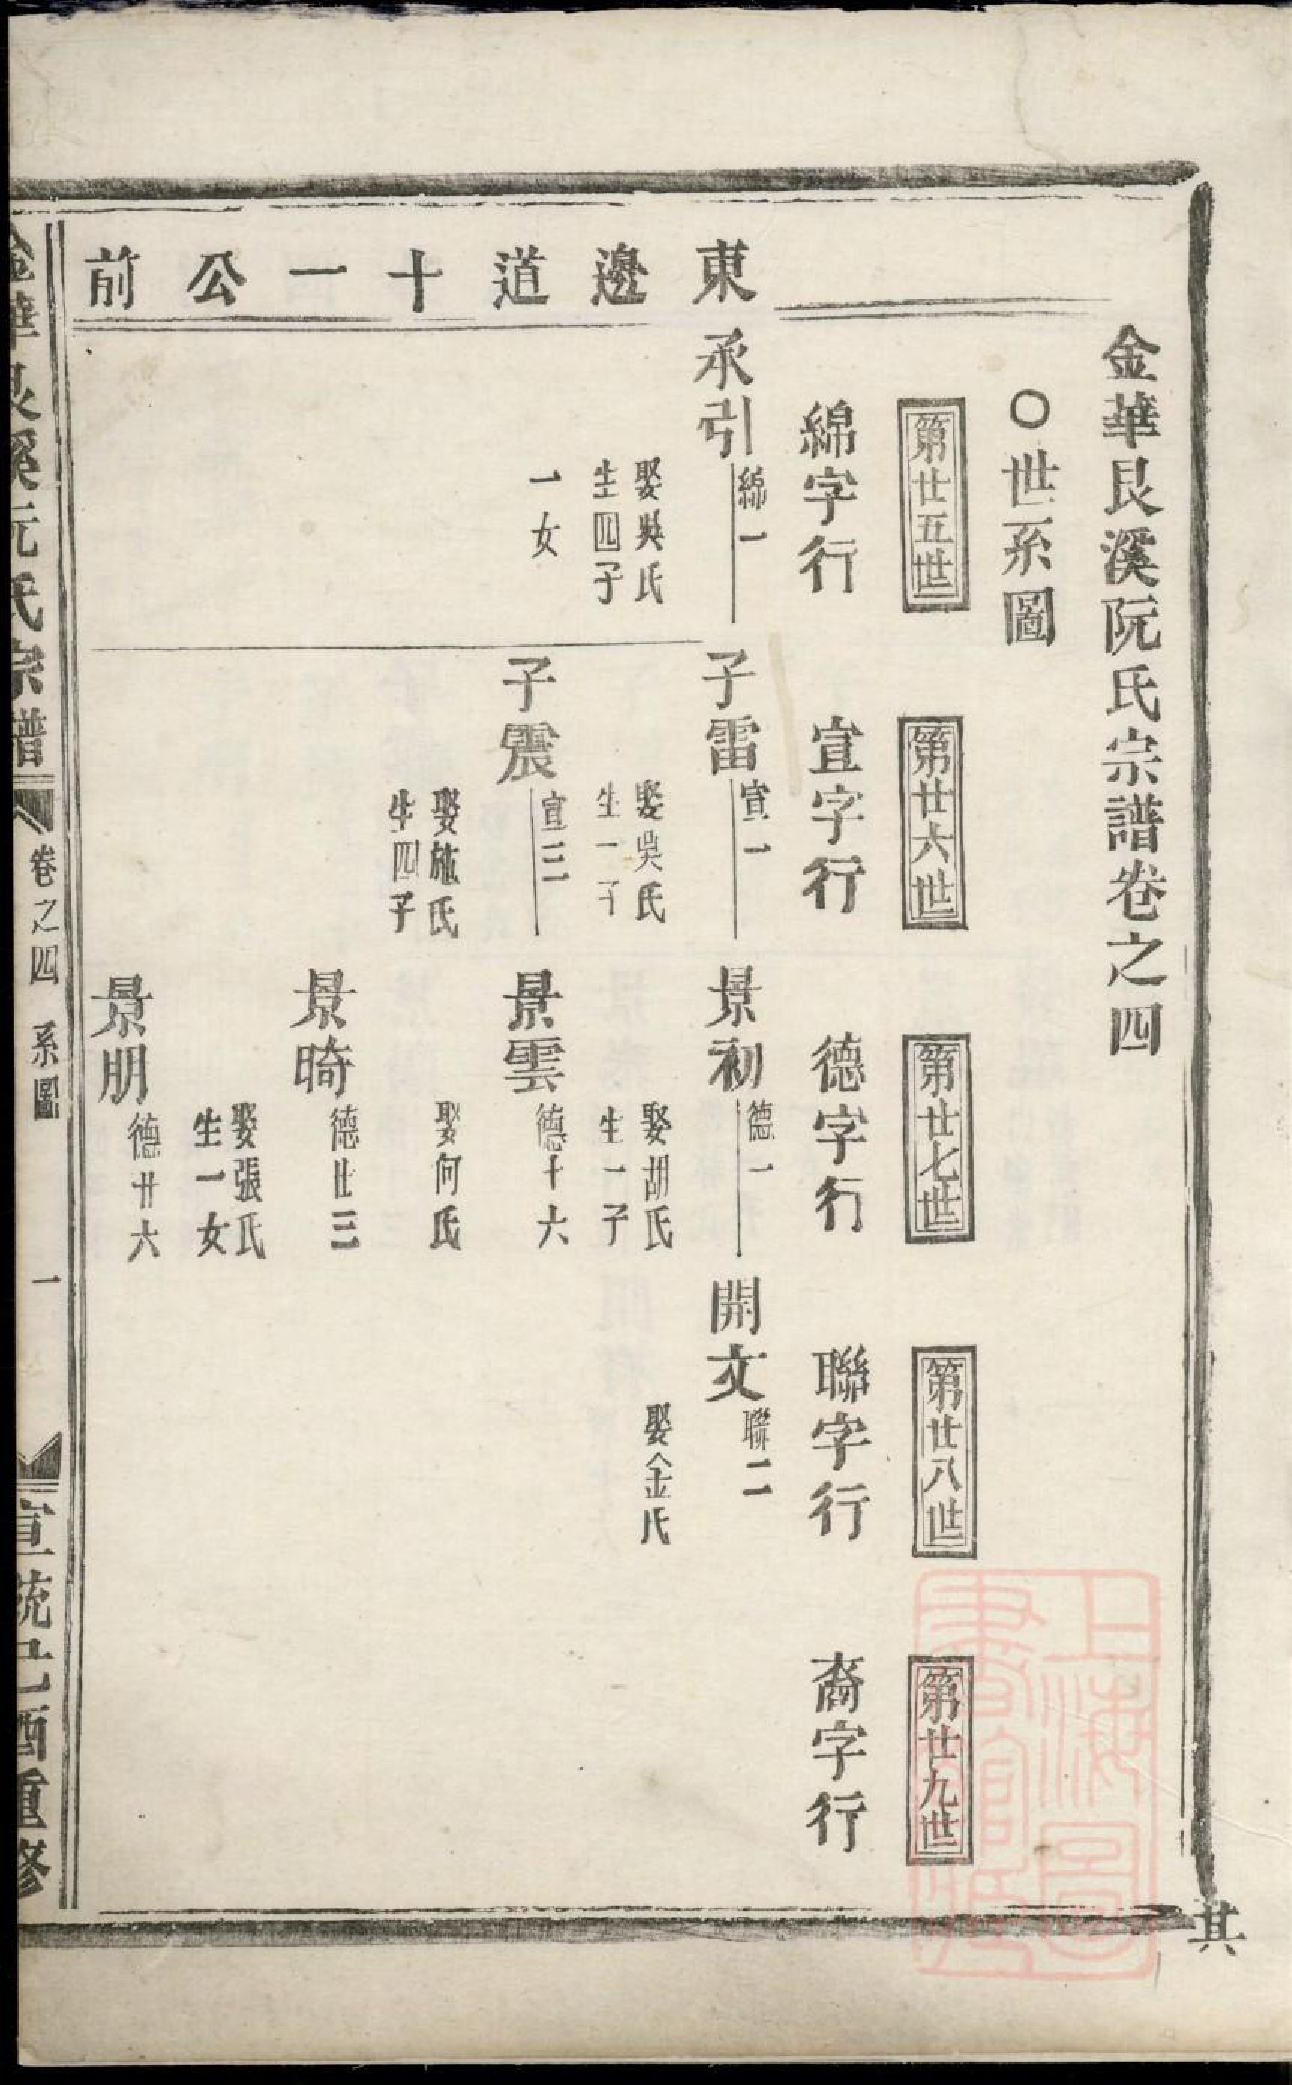 金華艮溪阮氏宗譜卷之四
○世系圖
第廿五世
第廿六世
第廿七世
第廿八世
第廿九世
綿字行
宣字行
德字行
聯字行
裔字行
東邊道十一公前
承引
綿一
娶吳氏
生四子
一女
子雷
宣一
娶吳氏
生一子
景初
德一
娶胡氏
生一子
開文
聯二
娶金氏
子震
宣三
娶施氏
生四子
景雲
德十六
娶何氏
景暘
德廿三
娶張氏
生一女
景朋
德廿六
金華艮溪阮氏宗譜
卷之四
系圖
一
宣統己酉重修
其
上海圖書館藏